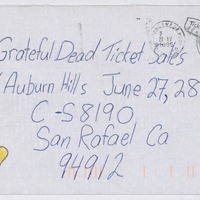 Grateful Dead Ticket Sales
Auburn Hills June 27, 28
C-S8190
San Rafael Ca
94912